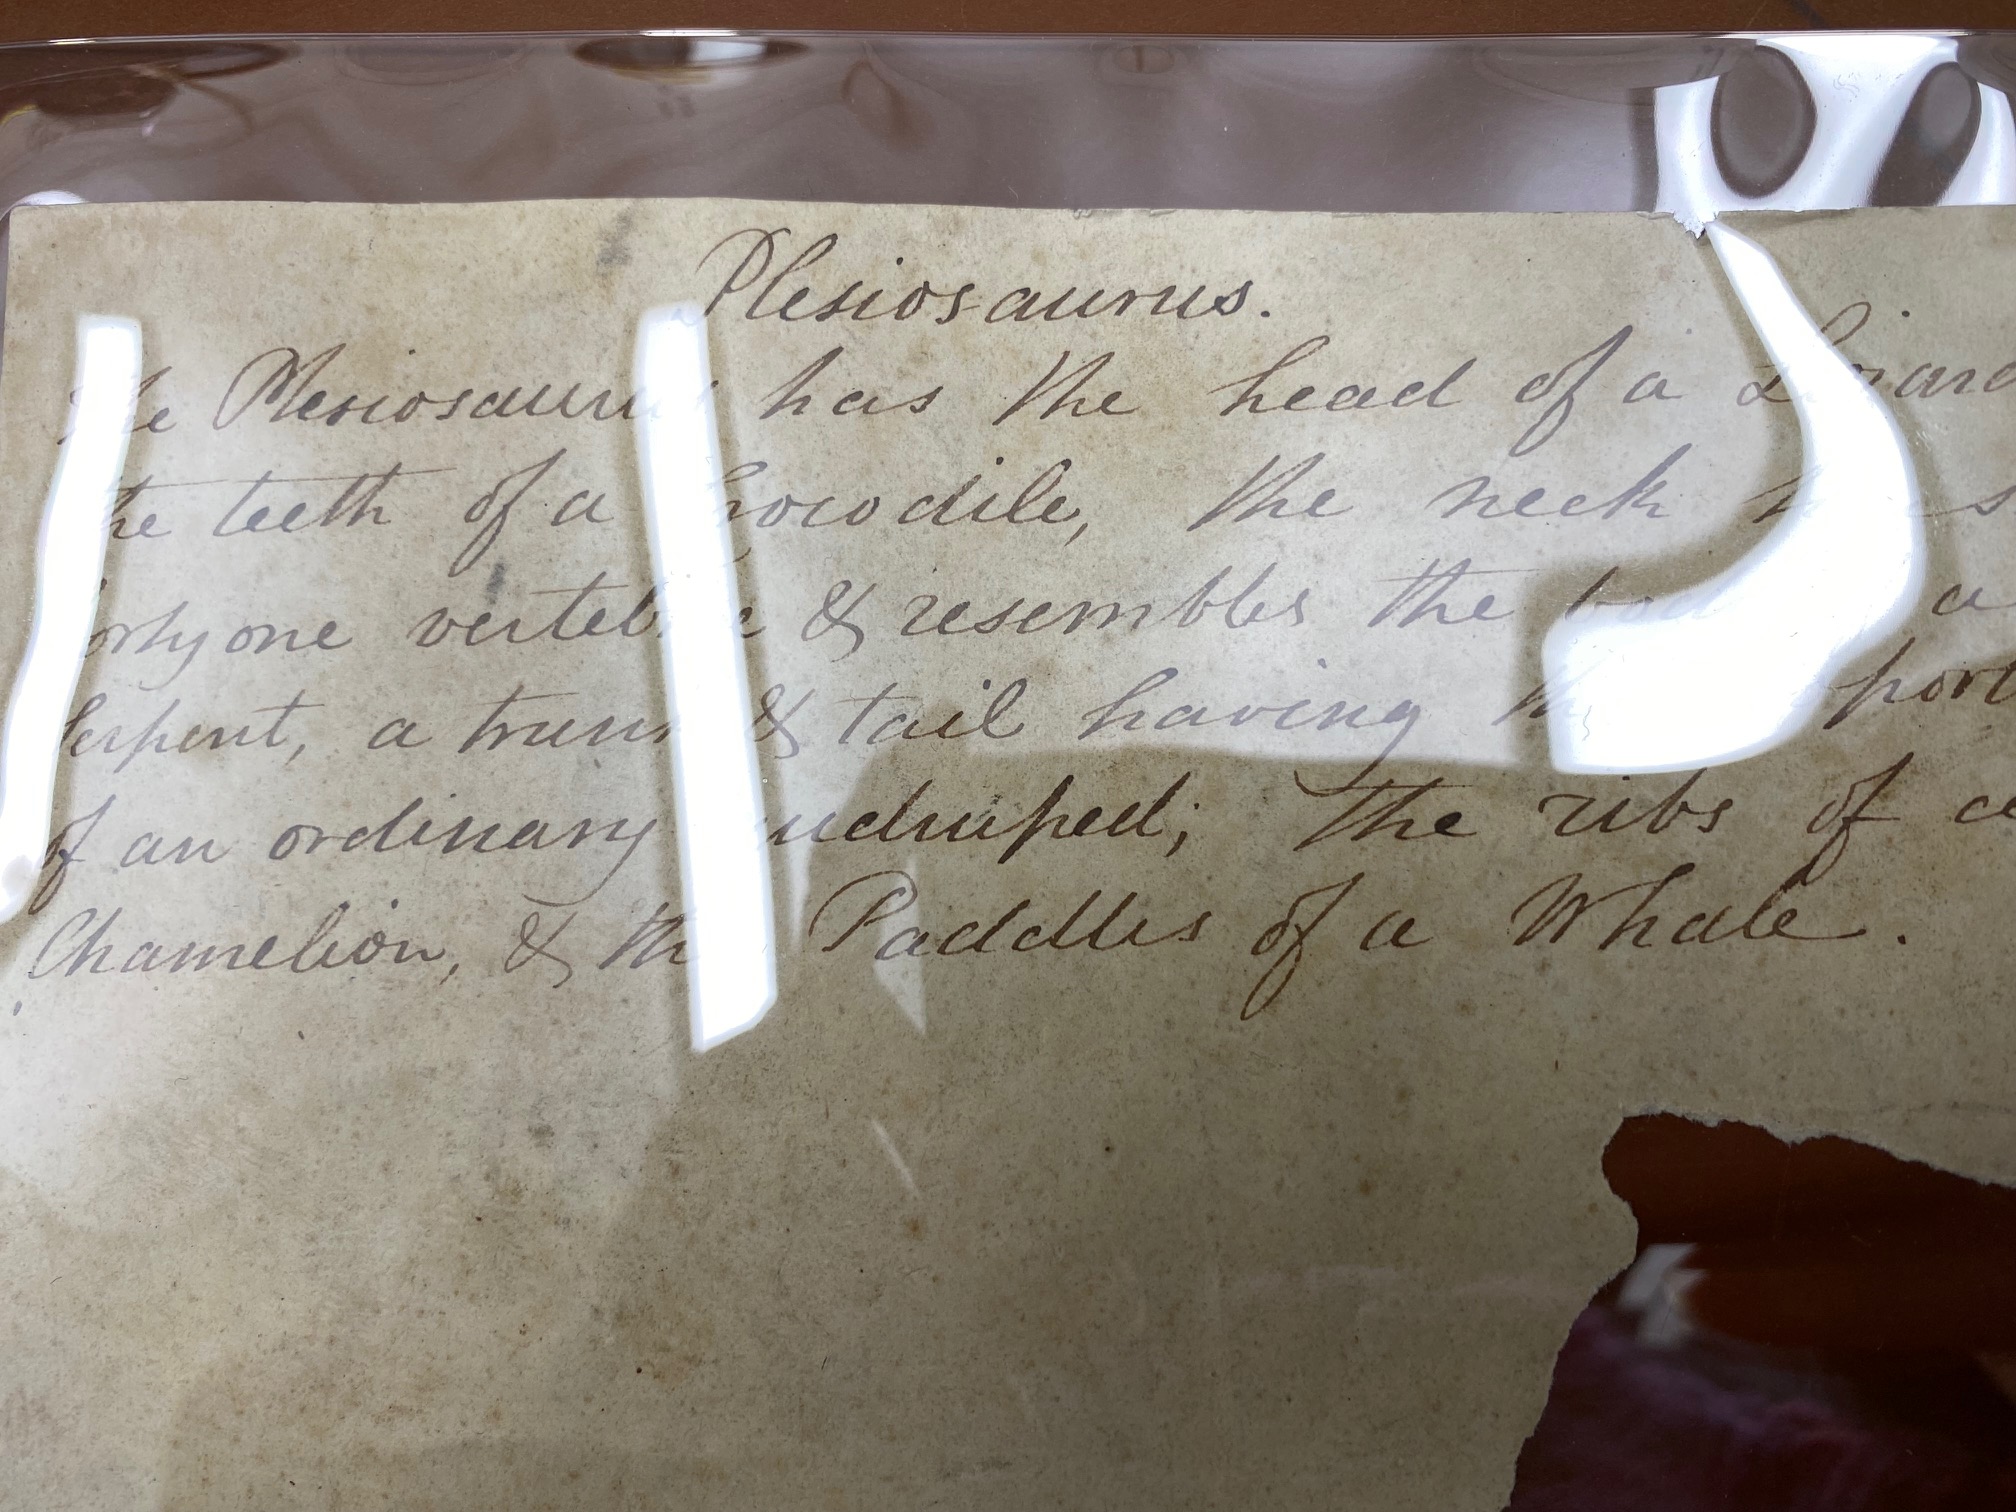 Plesiosaurus.
The Plesiosaurus has the head of a Lizard
the teeth of a Crocodile, the neck has
forty one vertebræ & resembles the body a
Serpent, a trunk & tail having
of an ordinary quadruped; the ribs of a
Chamelion, & the Paddles of a Whale.